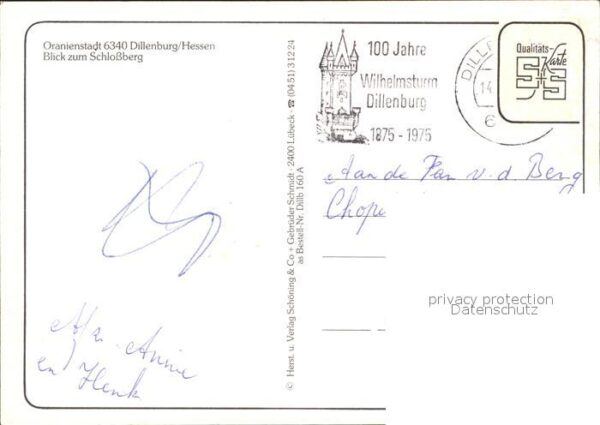 Oranienstadt 6340 Dillenburg/Hessen
Blick zum Schloßberg
100 Jahre
Wilhelmsturm
Dillenburg
1875 - 1975
DILL
14.
6
Qualitäts-
Karte
S+S
Aan de Fam v. d. Berg
Chope
© Herst. u. Verlag Schöning & Co + Gebrüder Schmidt · 2400 Lübeck · ☎ (04 51) 3 12 24
as Bestell-Nr. Dillb 160 A
Annie
en Henk
privacy protection
Datenschutz